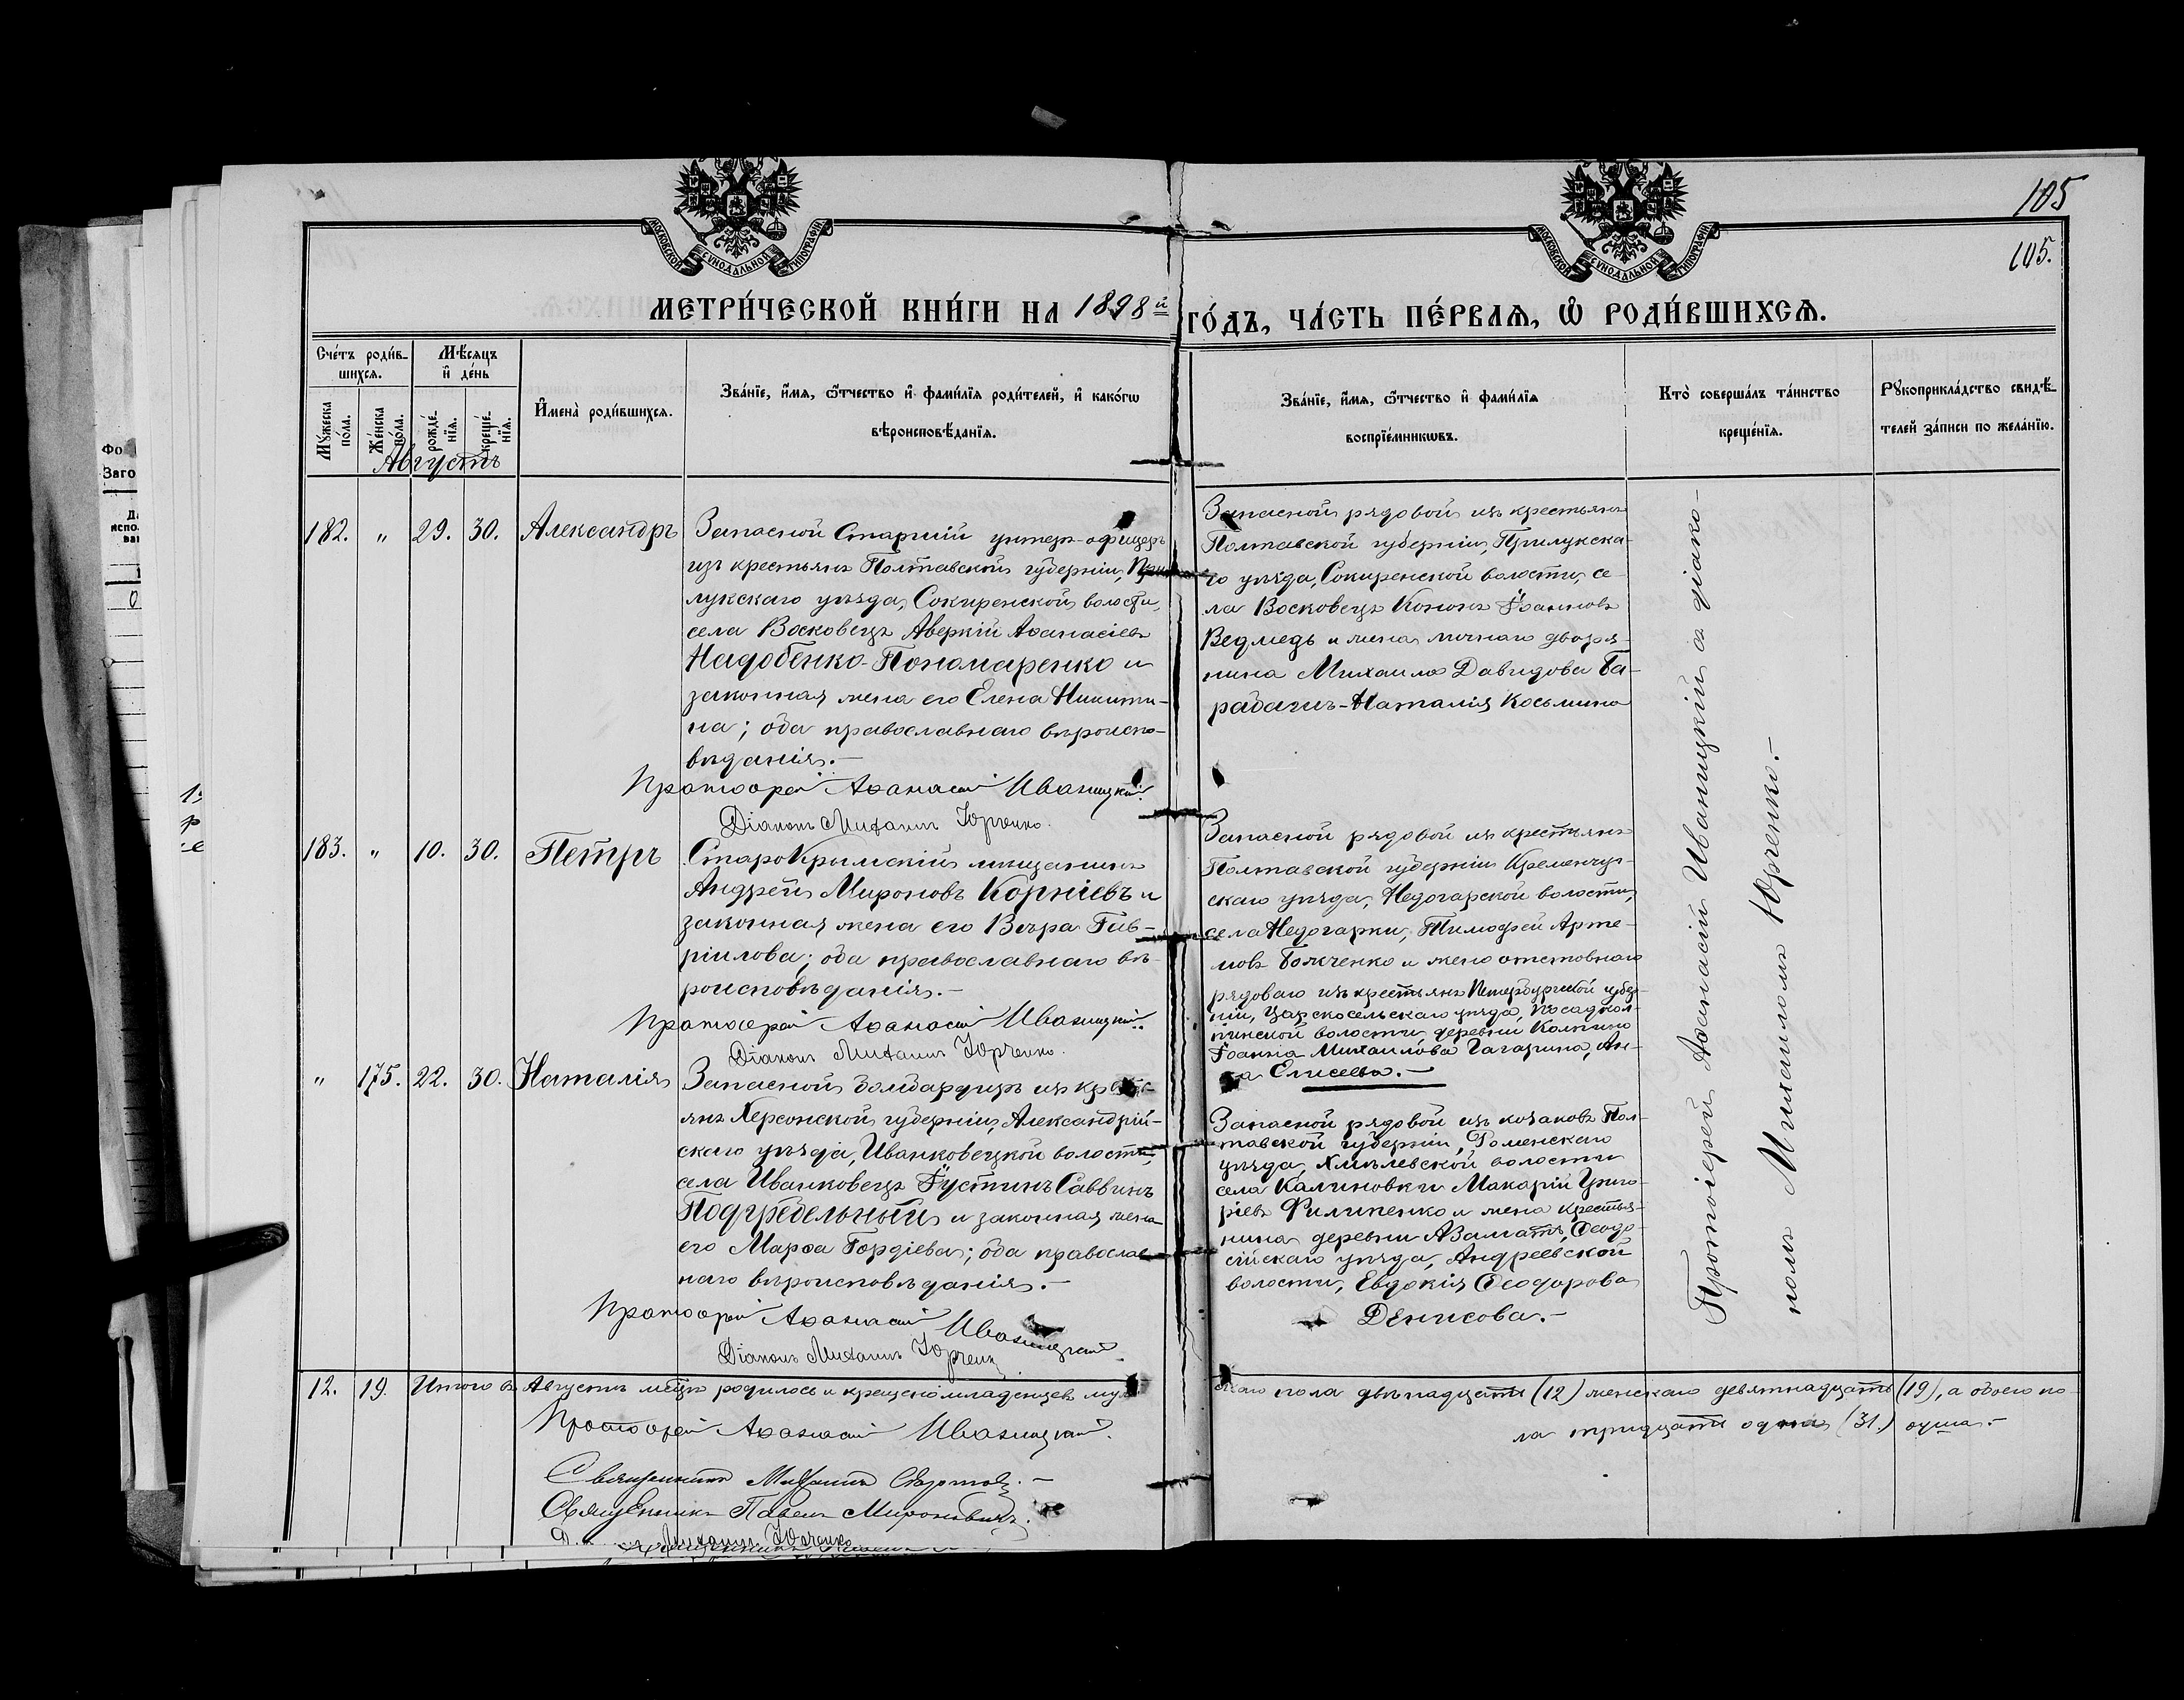 105
105.
МОСКОВСКОЙ СѴНОДАЛЬНОЙ ТИПОГРАФІИ
МОСКОВСКОЙ СѴНОДАЛЬНОЙ ТИПОГРАФІИ
МЕТРИ́ЧЕСКОЙ КНИ́ГИ НА 1898й ГО́ДЪ, ЧА́СТЬ ПЕ́РВАЯ, Ѡ РОДИ́ВШИХСЯ.
Сче́тъ роди́в-
шихся.
Мѣ́сяцъ
и҆ де́нь
Му́жеска
по́ла.
Же́нска
по́ла.
рожде́-
нїя.
креще́-
нїя.
И҆мена̀ роди́вшихся.
Зва́нїе, и҆́мя, ѻ҆́тчество и҆ фами́лїя роди́телей, и҆ како́гѡ
вѣроисповѣ́данїя.
Зва́нїе, и҆́мя, ѻ҆́тчество и҆ фами́лїя
воспрїе́мникѡвъ.
Кто̀ соверша́лъ та́инство
креще́нїя.
Рꙋкоприкла́дство свидѣ́-
телей за́писи по жела́нїю.
Августъ
182. " 29. 30. Александръ
Запасной Старшій унтеръ-офицеръ
изъ крестьянъ Полтавской губерніи, При-
лукскаго уѣзда, Сокиренской волости,
села Восковецъ Аверкій Аѳанасіевъ
Надобенко-Пономаренко и
законная жена его Елена Никити-
на; оба православнаго вѣроиспо-
вѣданія.-
Протоіерей Аѳанасій Иваницкій.
Діаконъ Михаилъ Юрченко.
Запасной рядовой изъ крестьянъ
Полтавской губерніи, Прилукска-
го уѣзда, Сокиренской волости, се-
ла Восковецъ Кононъ Іоанновъ
Ведмедь и жена личнаго дворя-
нина Михаила Давидова Ба-
радачъ-Наталія Косьмина
183. " 10. 30. Петръ
СтароКрымскій мещанинъ
Андрей Мироновъ Корніевъ и
законная жена его Вѣра Гав-
ріилова; оба православнаго вѣ-
роисповѣданія.-
Протоіерей Аѳанасій Иваницкій.
Діаконъ Михаилъ Юрченко.
Запасной рядовой изъ крестьянъ
Полтавской губерніи Кременчуг-
скаго уѣзда, Недогарской волости,
села Недогарки, Тимофей Арте-
мовъ Божченко и жена отставнаго
рядоваго изъ крестьянъ Петербургской губер-
ніи, Царскосельскаго уѣзда,
волости деревни Колпино
Іоанна Михаилова Гагарина, Ан-
на Елисеева.-
" 175. 22. 30. Наталія
Запасной бомбардиръ изъ кресть-
янъ Херсонской губерніи, Александрій-
скаго уѣзда, Иванковецкой волости,
села Иванковецъ Іустинъ Саввинъ
Подгребельный и законная жена
его Марѳа Гордіева; оба православ-
наго вѣроисповѣданія.-
Протоіерей Аѳанасій Иваницкій
Діаконъ Михаилъ Юрченко
Запасной рядовой изъ козаковъ Пол-
тавской губерніи, Роменскаго
уѣзда, Хмѣлевской волости
села Калиновки Макарій Григо-
ріевъ Филипенко и жена крестья-
нина деревни Азаматъ, Ѳеодо-
сійскаго уѣзда, Андреевской
волости, Евдокія Ѳеодорова
Денисова.-
Протоіерей Аѳанасій Иваницкій съ діако-
номъ Михаиломъ Юрченко.-
12. 19. Итого въ Августѣ мѣсяцѣ родилось и крещено младенцевъ муж-
скаго пола двѣнадцать (12) женскаго девятнадцать (19), а обоего по-
ла тридцать одна (31.) душа.-
Протоіерей Аѳанасій Иваницкій.
Священникъ Михаилъ
Священникъ Павелъ Мироновичъ.
Михаилъ Юрченко